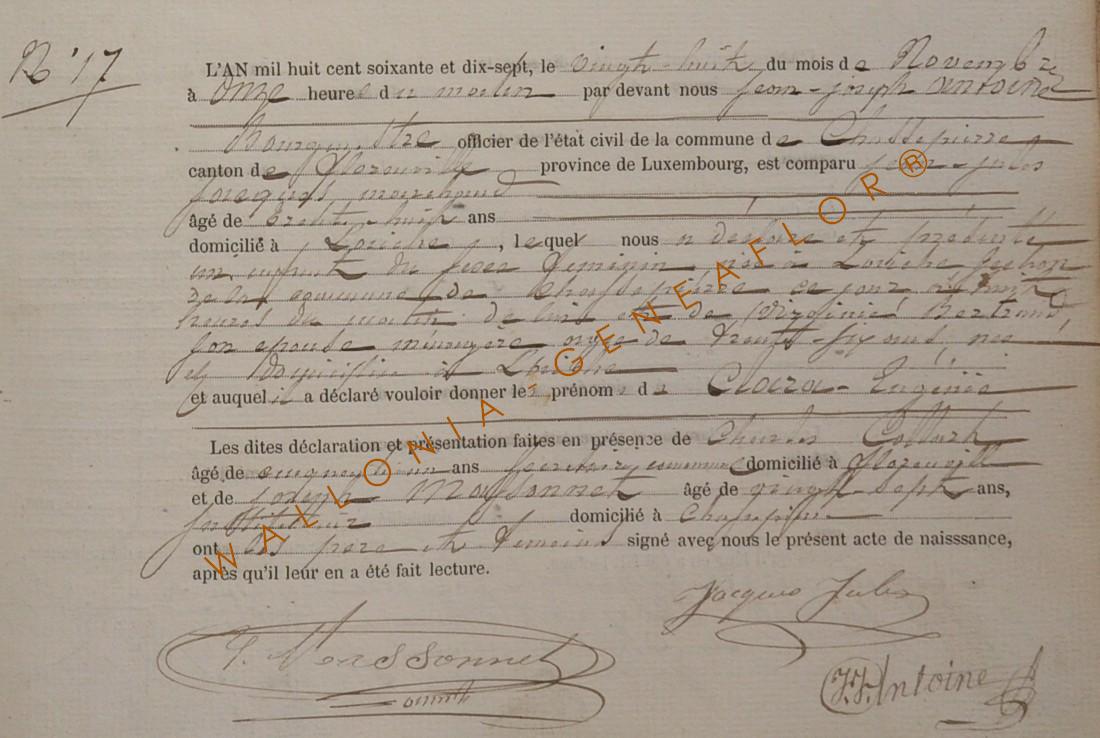 N° 17
L'AN mil huit cent soixante et dix-sept, le vingt-huit du mois de Novembre
à Onze heures du matin par devant nous Jean-Joseph Antoine
Bourgmestre officier de l'état civil de la commune de Chassepierre
canton de Florenville province de Luxembourg, est comparu Jean-Jules
Jacques, marchand
âgé de trente-huit ans
domicilié à Laiche, lequel nous a déclaré et présenté
un enfant du sexe féminin, née à Laiche section
de la commune de Chassepierre ce jour à huit
heures du matin de lui et de Virginie Bertrand,
son épouse ménagère âgée de trente-six ans, née
et domiciliée à Laiche
et auquel il a déclaré vouloir donner les prénoms de Clara-Eugénie
Les dites déclaration et présentation faites en présence de Charles Collard
âgé de ans secrétaire communal domicilié à Florenville
et de Joseph Massonnet âgé de vingt-sept ans,
Instituteur domicilié à Chassepierre
ont les père et témoins signé avec nous le présent acte de naisssance,
après qu'il leur en a été fait lecture.
Jacques Jules
J. Massonnet
J.J. Antoine
WALLONIA-GENEAFLOR®